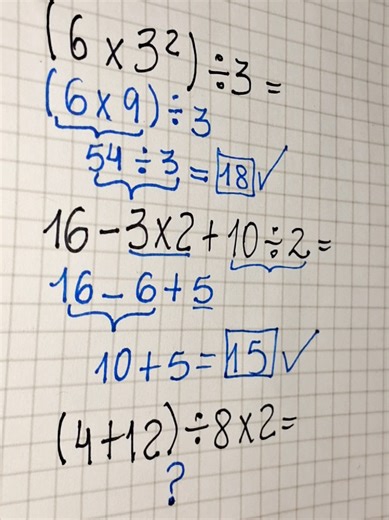 (6 × 3²) ÷ 3 =
(6 × 9) ÷ 3
54 ÷ 3 = 18 ✓
16 − 3 × 2 + 10 ÷ 2 =
16 − 6 + 5
10 + 5 = 15 ✓
(4 + 12) ÷ 8 × 2 =
?